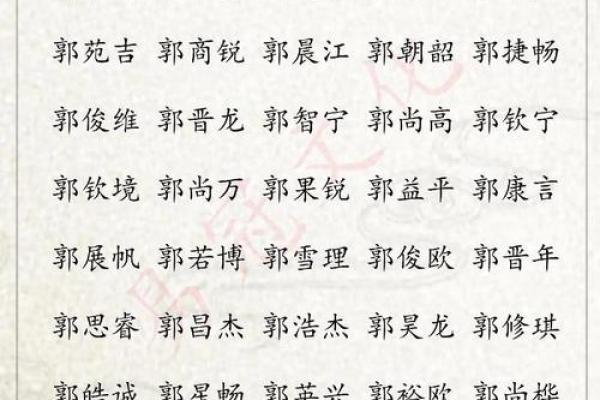 郭苑吉 郭商锐 郭晨江 郭朝韶 郭捷畅
郭俊维 郭晋龙 郭智宁 郭尚高 郭钦宁
郭钦境 郭尚万 郭果锐 郭益平 郭康言
郭展帆 郭若博 郭雪理 郭俊欧 郭晋年
郭思睿 郭昌杰 郭浩杰 郭昊龙 郭修琪
郭皓诚 郭星畅 郭英兴 郭裕欧 郭尚桦
易冠文化